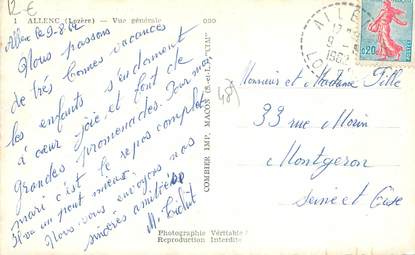 12 €
1 ALLENC (Lozère) — Vue générale 000
Allenc le 9-8-62
Nous passons
de très bonnes vacances
les enfants s'en donnent
à cœur joie et font de
grandes promenades. Pour mon
mari c'est le repos complet
Il va un peu mieux.
Nous vous envoyons nos
sincères amitiés
COMBIER IMP. MACON (S.-et-L.) "CIM"
ALLE
LO
0,20
489
Monsieur et Madame Fille
33 rue Morin
Montgeron
Seine et Oise
Photographie Véritable
Reproduction Interdite